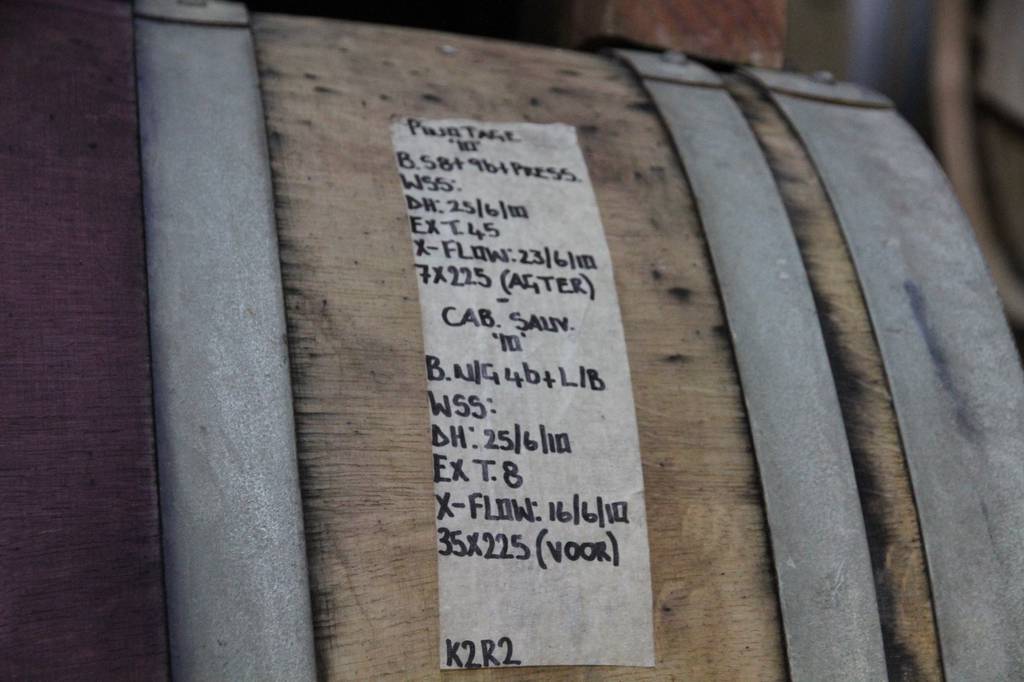 PINOTAGE
'10'
B.58+9b+PRESS.
WSS:
DH: 25/6/10
EXT.45
X-FLOW: 23/6/10
7X225 (AGTER)
-
CAB. SAUV.
'10'
B.N/G 4b+L/B
WSS:
DH: 25/6/10
EXT.8
X-FLOW: 16/6/10
35X225 (VOOR)
K2R2